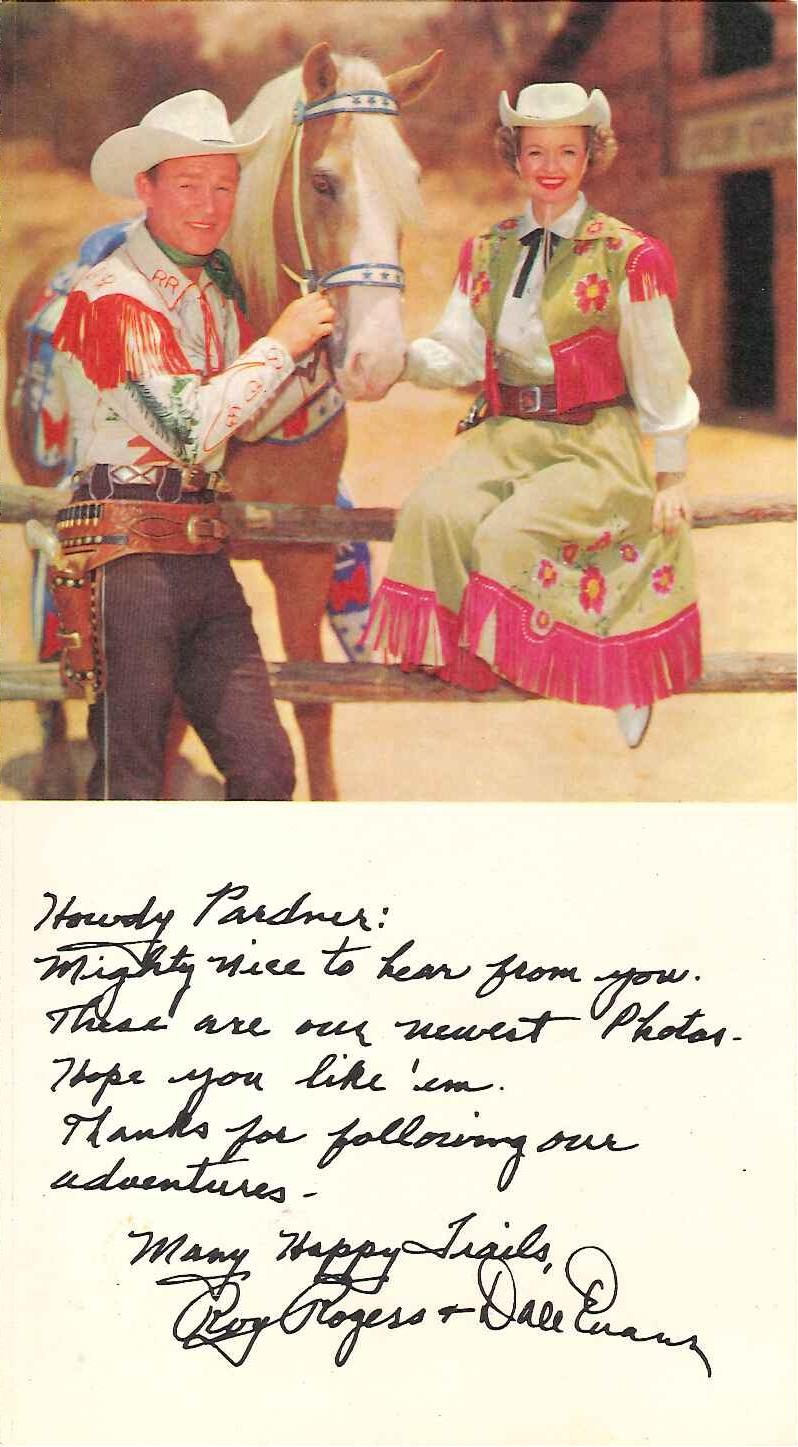 RR
Howdy Pardner:
Mighty nice to hear from you.
These are our newest Photos-
Hope you like 'em.
Thanks for following our
adventures-
Many Happy Trails,
Roy Rogers & Dale Evans